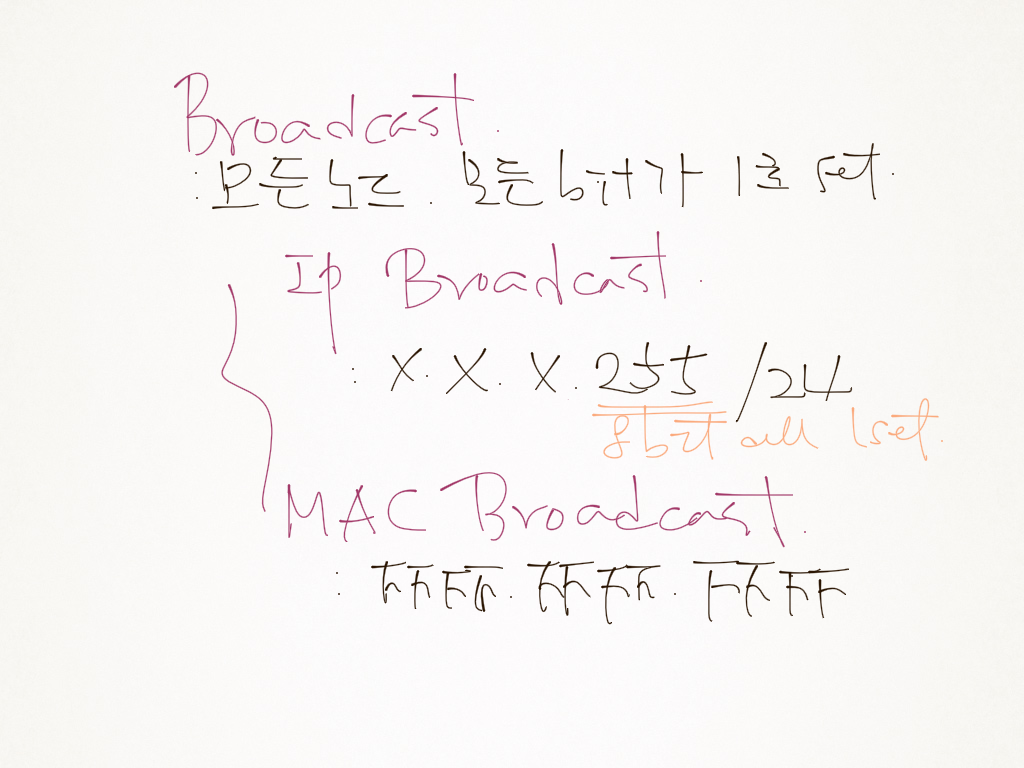 Broadcast.
: 모든 노드. 모든 bit가 1로 set.
Ip Broadcast.
: X. X. X. 255 /24
8bit all 1set.
MAC Broadcast.
: FFFF. FFFF. FFFF